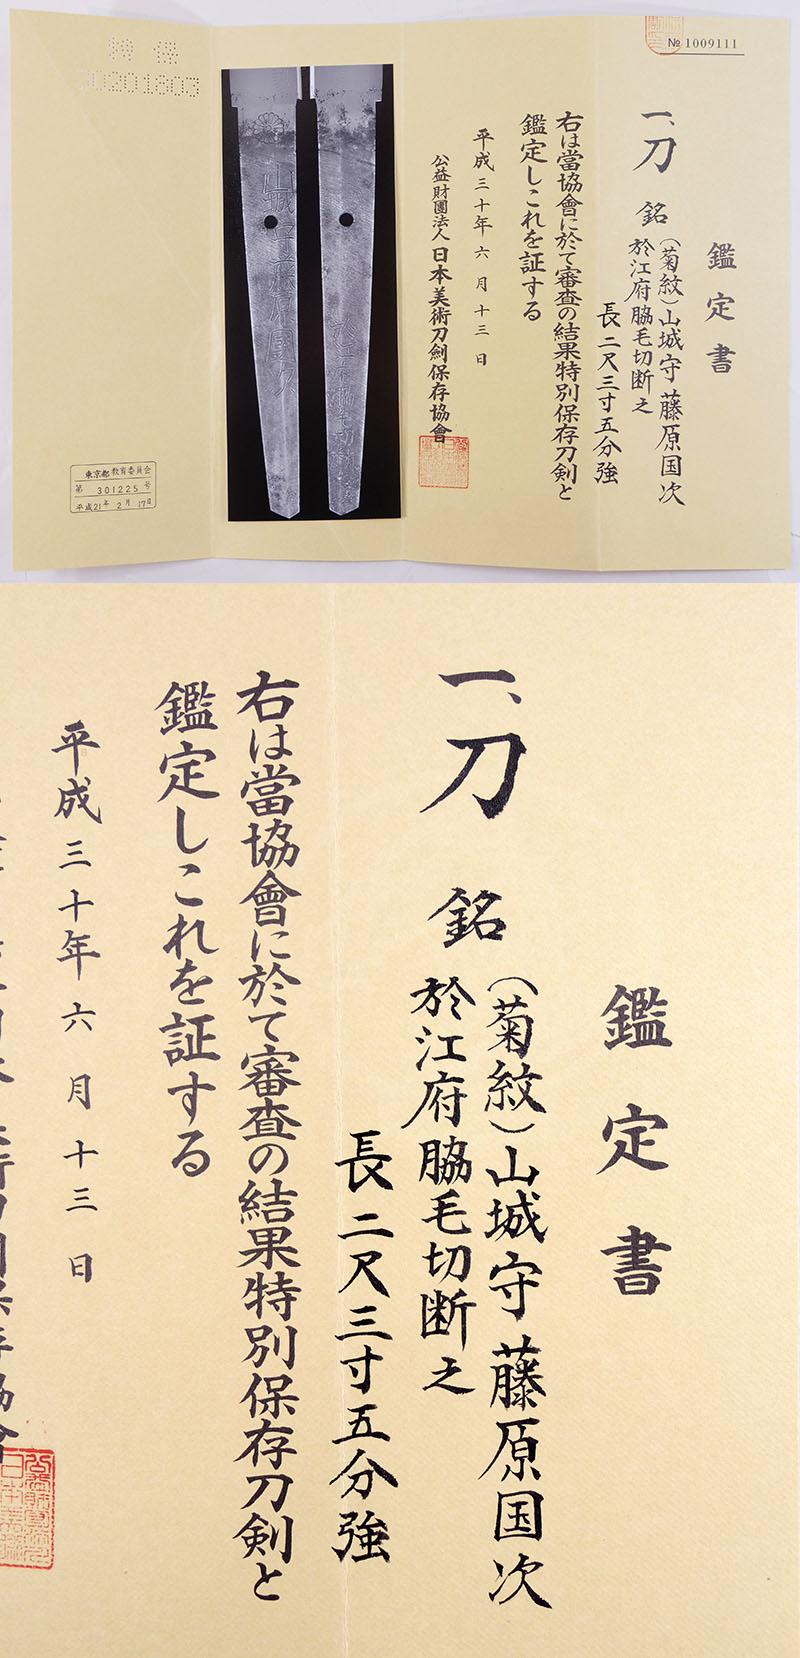 № 1009111
鑑定書
一、刀 銘 (菊紋)山城守藤原国次
於江府脇毛切断之
長二尺三寸五分強
右は當協會に於て審査の結果特別保存刀剣と
鑑定しこれを証する
平成三十年六月十三日
公益財團法人 日本美術刀剣保存協會
山城守藤原國次
特 保
30201803
東京都教育委員会
第 301225 号
平成21年 2月 17日
鑑定書
一、刀 銘 (菊紋)山城守藤原国次
於江府脇毛切断之
長二尺三寸五分強
右は當協會に於て審査の結果特別保存刀剣と
鑑定しこれを証する
平成三十年六月十三日